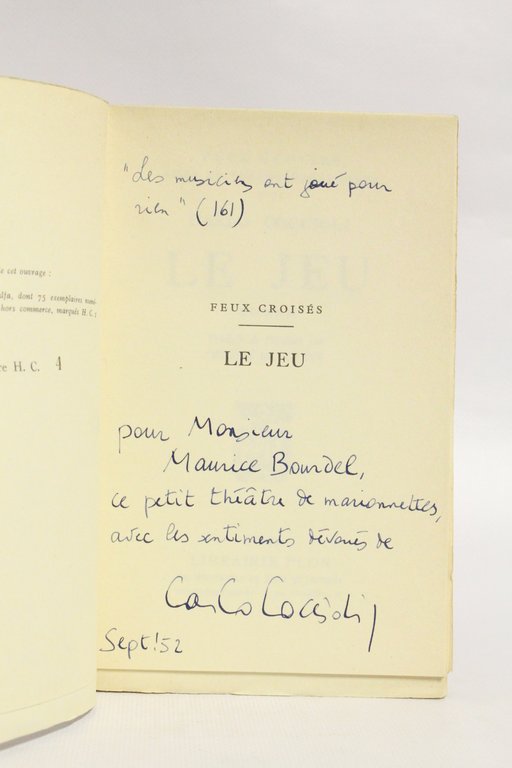 e cet ouvrage :
lfa, dont 75 exemplaires
hors commerce, marqués H. C. ;
re H. C. 4
"Les musiciens ont joué pour
rien" (161)
LE JEU
FEUX CROISÉS
LE JEU
pour Monsieur
Maurice Bourdel,
ce petit théâtre de marionnettes,
avec les sentiments dévoués de
LIBRAIRIE PLON
Carlo Coccioli
Sept! 52